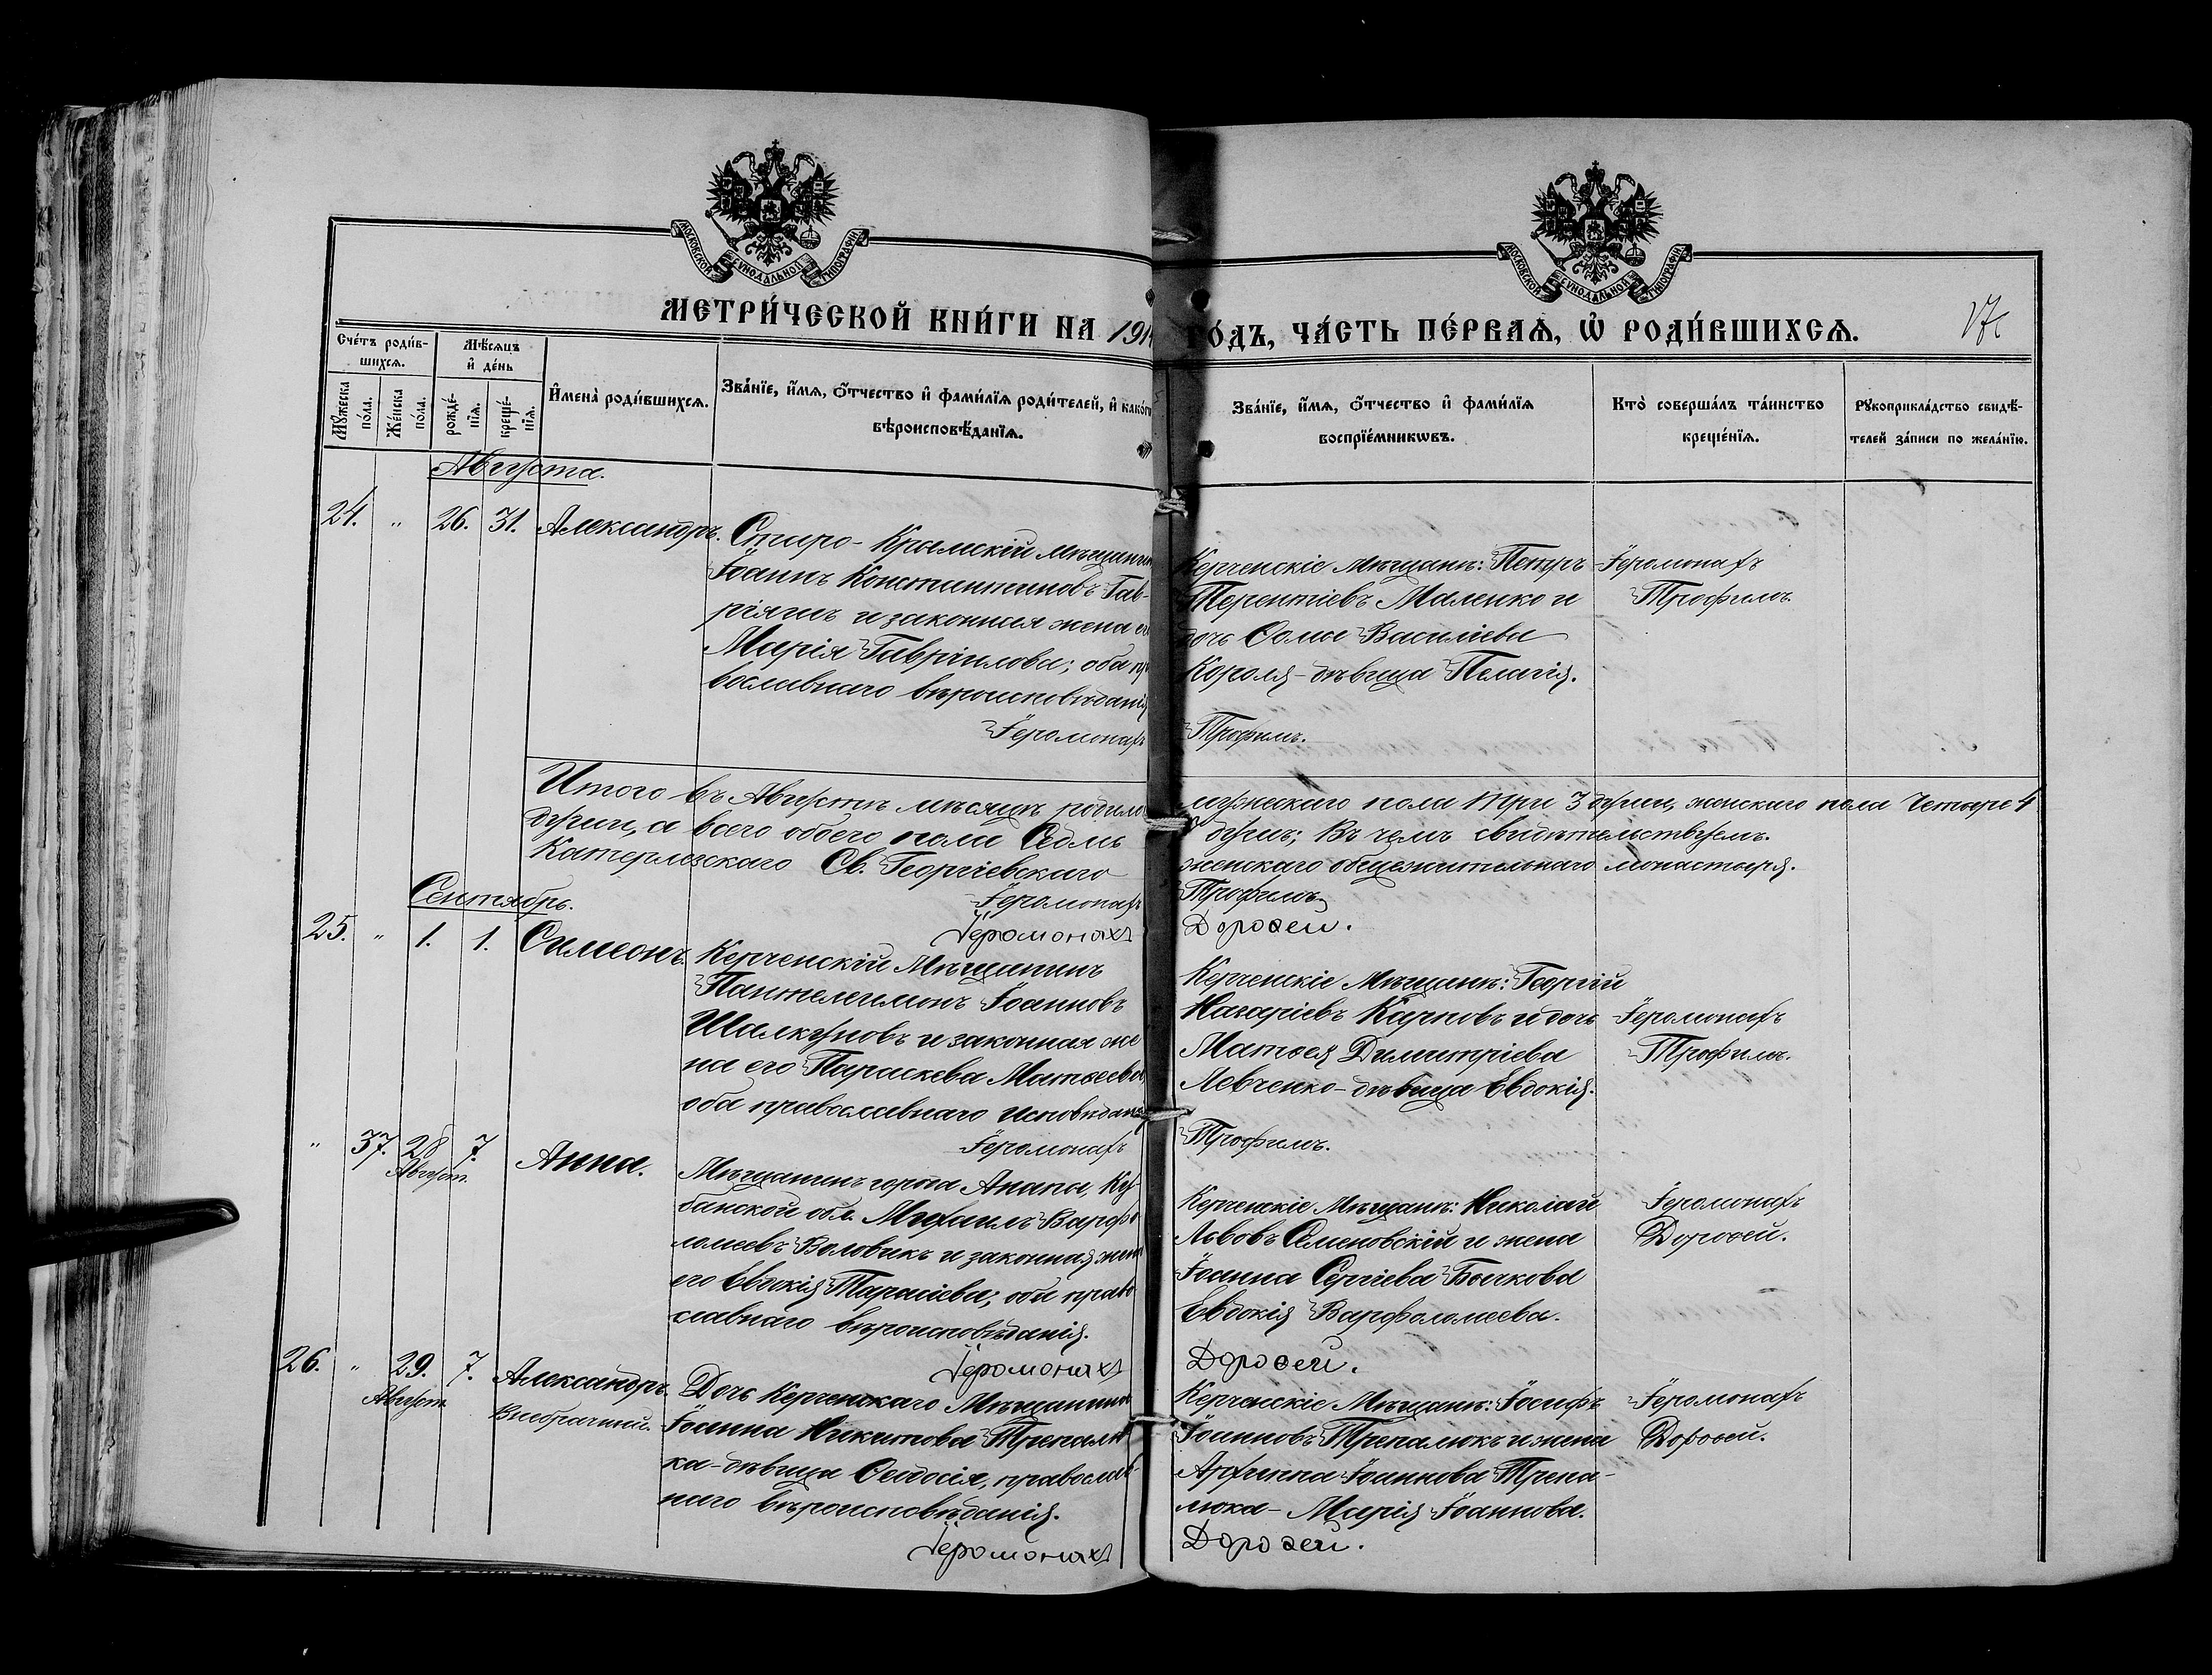 МОСКОВСКОЙ СУНОДАЛЬНОЙ ТИПОГРАФІИ
МОСКОВСКОЙ СУНОДАЛЬНОЙ ТИПОГРАФІИ
МЕТРИ́ЧЕСКОЙ КНИ́ГИ НА 191
ГО́ДЪ, ЧА́СТЬ ПЕ́РВАѦ, Ѡ҆ РОДИ́ВШИХСѦ.
Сче́тъ роди́в-
шихсѧ.
Мѣ́сѧцъ
и҆ де́нь
Мꙋ́жеска
по́ла.
Же́нска
по́ла.
рожде́-
нїѧ.
креще́-
нїѧ.
И҆мена̀ роди́вшихсѧ.
Зва́нїе, и҆́мѧ, ѻ҆́тчество и҆ фами́лїѧ роди́телей, и҆ како́гѡ
вѣроисповѣ́данїѧ.
Зва́нїе, и҆́мѧ, ѻ҆́тчество и҆ фами́лїѧ
воспрїе́мникѡвъ.
Кто̀ соверша́лъ та́инство
креще́нїѧ.
Рꙋкоприкла́дство свидѣ́-
телей за́писи по жела́нїю.
Августа.
24. " 26. 31. Александръ.
Старо-Крымскій мѣщанинъ
Іоаннъ Константиновъ Гав-
ріягинъ и законная жена его
Марія Гавріилова; оба пра
вославнаго вѣроисповѣданія
Іеромонахъ
Керченскіе мѣщане: Петръ
Терентіевъ Маленко и
дочь Ѳомы Василіева
Короля - дѣвица Пелагія.
Трофимъ.
Іеромонахъ
Трофимъ.
Итого въ Августѣ мѣсяцѣ родило
мужескаго пола три 3 души, женскаго пола четыре 4
души, а всего обоего пола Седмь
душъ; Въ чемъ свидѣтельствуемъ.
Катерлезскаго Св. Георгіевскаго
женскаго общежительнаго монастыря.
Іеромонахъ Трофимъ
Іеромонахъ Дороѳей.
Сентябрь.
25. " 1. 1. Симеонъ.
Керченскій Мѣщанинъ
Пантелеимонъ Іоанновъ
Шалкуновъ и законная же
на его Параскева Матѳеева
оба православнаго исповѣданія
Іеромонахъ
Керченскіе мѣщане: Георгій
Макаріевъ Карповъ и дочь
Матѳея Димитріева
Левченко - дѣвица Евдокія.
Трофимъ.
Іеромонахъ
Трофимъ.
" 37. 28 7. Анна.
Август.
Мѣщанинъ города Анапы, Ку-
банской обл. Михаилъ Варфо
ломеевъ Воловикъ и законная жена
его Евдокія Тарасіева; оба право
славнаго вѣроисповѣданія.
Іеромонахъ
Керченскіе Мѣщане: Николай
Львовъ Семеновскій и жена
Іоанна Сергіева Бычкова
Евдокія Варфоломеева.
Дороѳей.
Іеромонахъ
Дороѳей.
26. " 29. 7. Александръ.
Август.
Внебрачный.
Дочь Керченскаго Мѣщанина
Іоанна Никитова Трепалю
ка - дѣвица Ѳеодосія, православ-
наго вѣроисповѣданія.
Іеромонахъ
Керченскіе Мѣщане: Іосифъ
Іоанновъ Трепалюкъ и жена
Архиппа Іоаннова Трепа-
люка - Марія Іоаннова.
Дороѳей.
Іеромонахъ
Дороѳей.